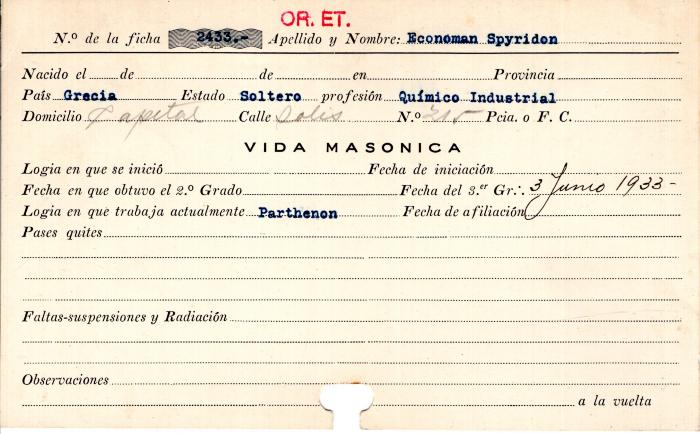 OR. ET.
N.º de la ficha 2433.- Apellido y Nombre: Economan Spyridon
Nacido el de de en Provincia
País Grecia Estado Soltero profesión Químico Industrial
Domicilio Capital Calle Solis N.º 315 Pcia. o F. C.
VIDA MASONICA
Logia en que se inició Fecha de iniciación
Fecha en que obtuvo el 2.º Grado Fecha del 3.er Gr∴ 3 Junio 1933-
Logia en que trabaja actualmente Parthenon Fecha de afiliación
Pases quites
Faltas-suspensiones y Radiación
Observaciones
a la vuelta